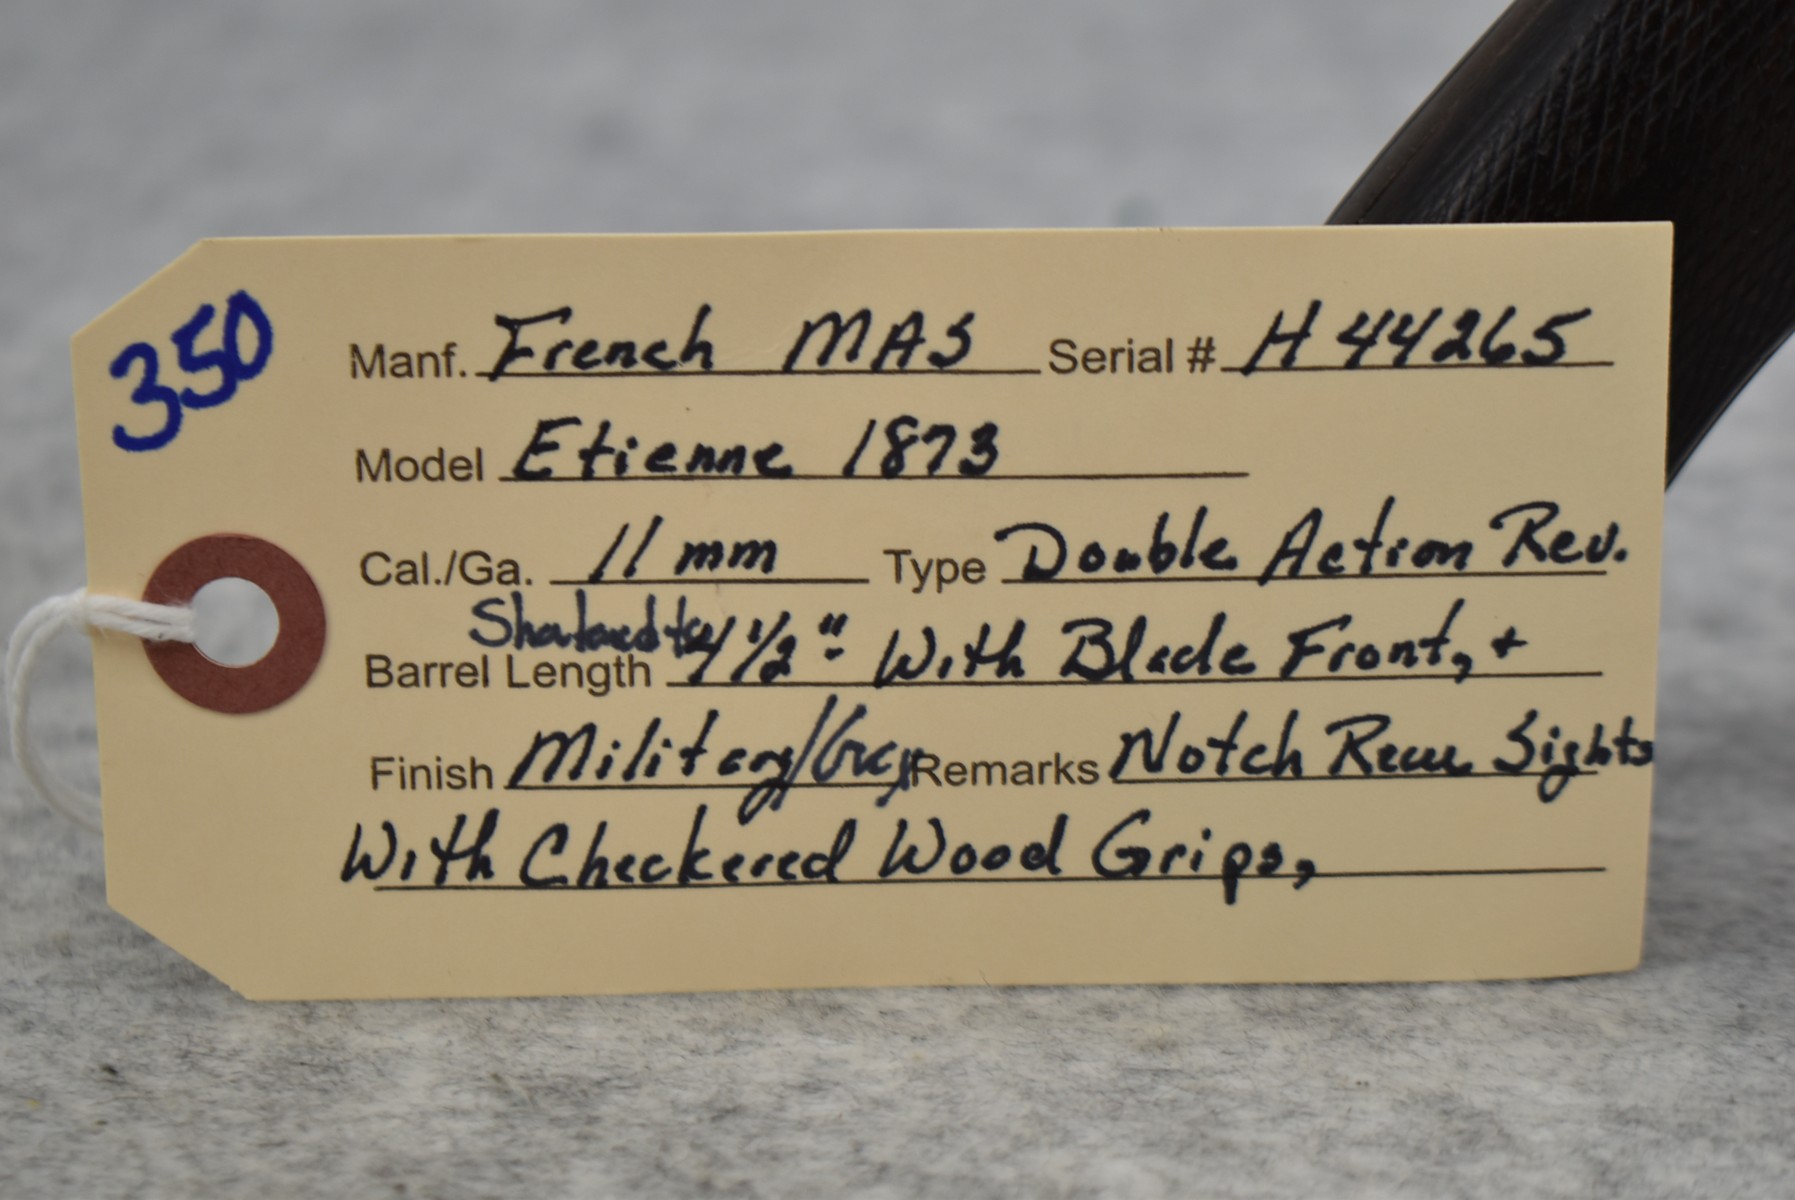 350
Manf. French MAS Serial # H 44265
Model Etienne 1873
Cal./Ga. 11 mm Type Double Action Rev.
Shortened to
Barrel Length 4 1/2" With Blade Front, +
Finish Military/Gray Remarks Notch Rear Sights
With Checkered Wood Grips,